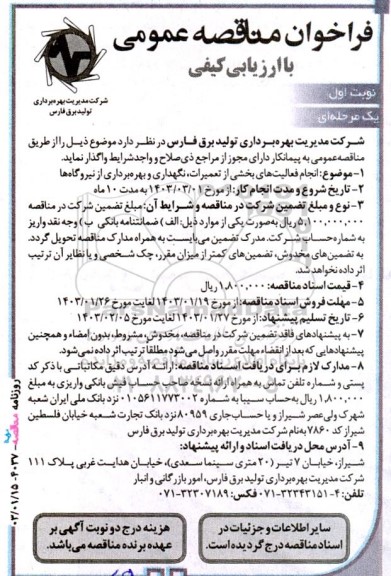 فراخوان مناقصه عمومی
با ارزیابی کیفی
شرکت مدیریت بهره‌برداری
تولید برق فارس
نوبت اول
یک مرحله‌ای
شرکت مدیریت بهره‌برداری تولید برق فارس در نظر دارد موضوع ذیل را از طریق
مناقصه عمومی به پیمانکار دارای مجوز از مراجع ذی‌صلاح و واجد شرایط واگذار نماید.
۱-موضوع: انجام فعالیت‌های بخشی از تعمیرات، نگهداری و بهره‌برداری از نیروگاه‌ها
۲- تاریخ شروع و مدت انجام کار: از مورخ ۱۴۰۳/۰۳/۰۱ به مدت ۱۰ ماه
۳- نوع و مبلغ تضمین شرکت در مناقصه و شرایط آن: مبلغ تضمین شرکت در مناقصه
ریال به‌صورت یکی از موارد ذیل: الف) ضمانتنامه بانکی ب) وجه نقد واریز
به شماره حساب شرکت. مدرک تضمین می‌بایست به همراه مدارک مناقصه تحویل گردد.
به تضمین‌های مخدوش، تضمین‌های کمتر از میزان مقرر، چک شخصی و یا نظایر آن ترتیب
اثر داده نخواهد شد.
۴- قیمت اسناد مناقصه: ۱,۸۰۰,۰۰۰ ریال
۵- مهلت فروش اسناد مناقصه: از مورخ ۱۴۰۳/۰۱/۱۹ لغایت مورخ ۱۴۰۳/۰۱/۲۶
۶- تاریخ تسلیم پیشنهاد: از مورخ ۱۴۰۳/۰۱/۲۷ لغایت مورخ ۱۴۰۳/۰۲/۰۵
۷- به پیشنهادهای فاقد تضمین شرکت در مناقصه، مخدوش، مشروط، بدون امضاء و همچنین
پیشنهادهایی که بعد از انقضاء مهلت مقرر واصل می‌شود مطلقا ترتیب اثر داده نمی‌شود.
۸- مدارک لازم برای دریافت اسناد مناقصه: ارائه آدرس دقیق مکاتباتی با ذکر کد
پستی و شماره تلفن تماس به همراه ارائه نسخه صاحب حساب فیش بانکی واریزی به مبلغ
۱,۸۰۰,۰۰۰ ریال به حساب سیبا به شماره ۰۱۰۵۶۱۱۷۷۳۰۰۲ نزد بانک ملی ایران شعبه
شهرک ولی‌عصر شیراز و یا حساب جاری ۸۰۹۵۹ نزد بانک تجارت شعبه خیابان فلسطین
شیراز کد ۷۸۶۰ به نام شرکت مدیریت بهره‌برداری تولید برق فارس
۹- آدرس محل دریافت اسناد و ارائه پیشنهاد:
شیراز، خیابان ۷ تیر (۲۰ متری سینما سعدی)، خیابان هدایت غربی پلاک ۱۱۱
شرکت مدیریت بهره‌برداری تولید برق فارس، امور بازرگانی و انبار
تلفن: ۴-۳۲۳۴۳۱۵۱-۰۷۱ فکس: ۳۲۳۰۷۱۸۹-۰۷۱
سایر اطلاعات و جزئیات در
اسناد مناقصه درج گردیده است.
هزینه درج دو نوبت آگهی بر
عهده برنده مناقصه می‌باشد.
روزنامه مناقصه - ۴۰۳۷ - ۰۳/۰۱/۱۵